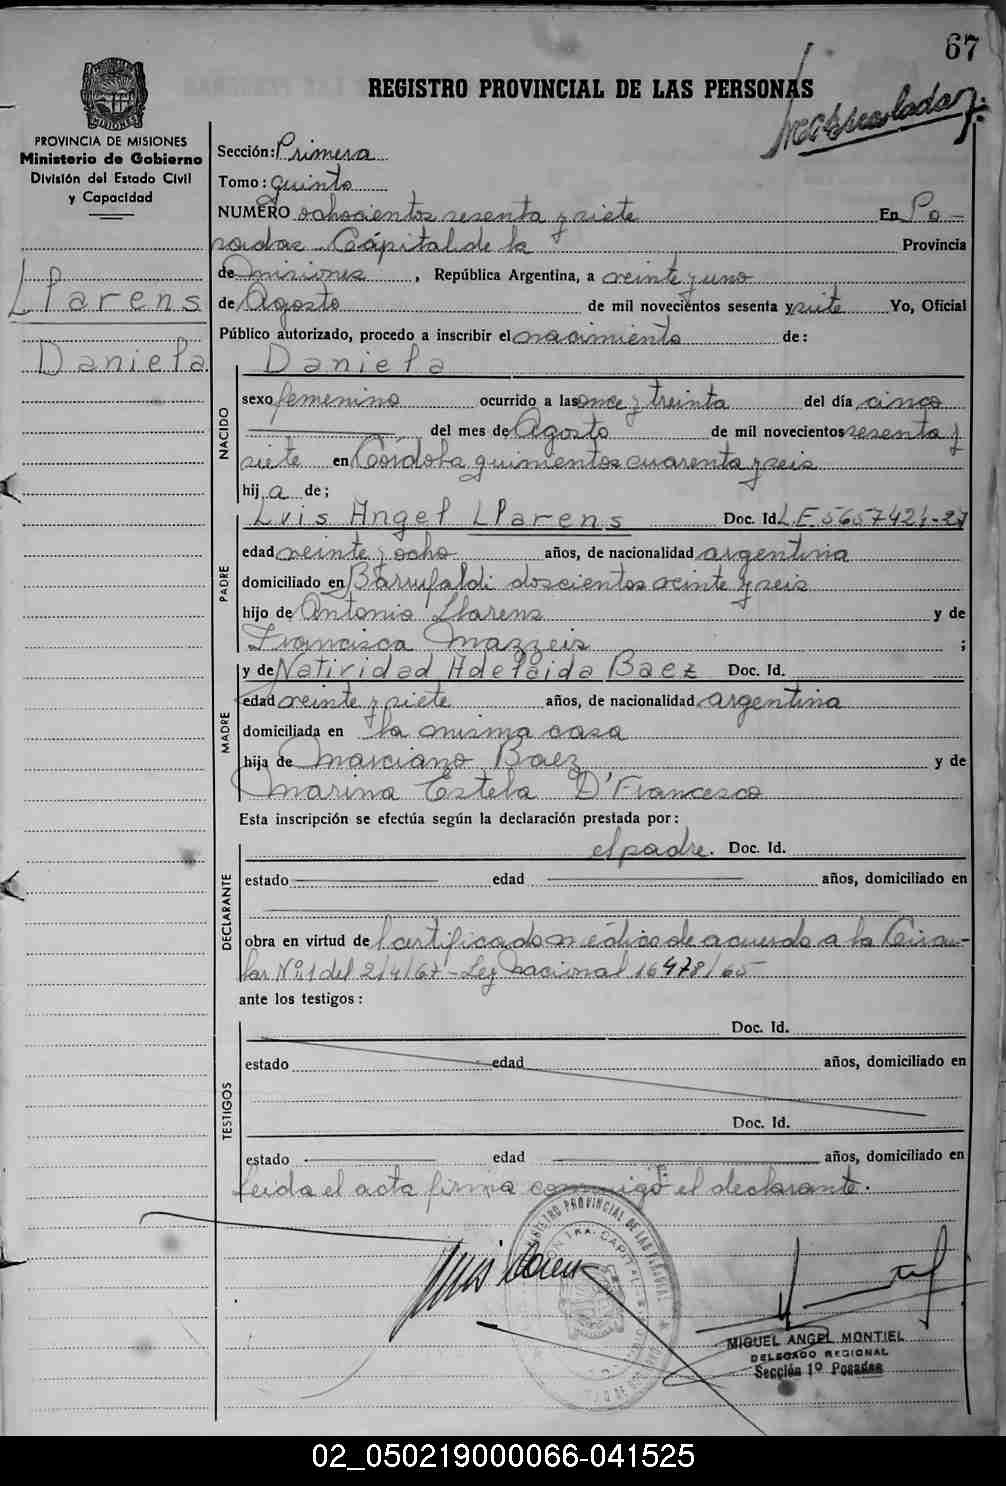 67
REGISTRO PROVINCIAL DE LAS PERSONAS
MISIONES
PROVINCIA DE MISIONES
Ministerio de Gobierno
División del Estado Civil
y Capacidad
Llarens
Daniela
Sección: Primera
Tomo: quinto
NUMERO ochocientos sesenta y siete En Po-
sadas Cápital de la Provincia
de Misiones, República Argentina, a veinte y uno
de Agosto de mil novecientos sesenta y siete Yo, Oficial
Público autorizado, procedo a inscribir el nacimiento de:
Daniela
NACIDO
sexo femenino ocurrido a las once y treinta del día cinco
del mes de Agosto de mil novecientos sesenta y
siete en Córdoba quinientos cuarenta y seis
hij a de;
PADRE
Luis Angel Llarens Doc. Id. L.E
edad veinte y ocho años, de nacionalidad argentina
domiciliado en Barrufaldi doscientos veinte y seis
hijo de Antonio Llarens y de
Francisca Mazzeis ;
MADRE
y de Natividad Adelaida Baez Doc. Id.
edad veinte y siete años, de nacionalidad argentina
domiciliada en la misma casa
hija de Marciano Baez y de
Marina Estela D'Francesco
Esta inscripción se efectúa según la declaración prestada por:
DECLARANTE
el padre. Doc. Id.
estado edad años, domiciliado en
obra en virtud de l certificado médico de acuerdo a la Circu-
lar Nº 1 del 2/4/67 - Ley Nacional 16478/65
ante los testigos:
TESTIGOS
Doc. Id.
estado edad años, domiciliado en
Doc. Id.
estado edad años, domiciliado en
Leida el acta firma conmigo el declarante.
REGISTRO PROVINCIAL DE LAS PERSONAS
Luis Llarens
MIGUEL ANGEL MONTIEL
DELEGADO REGIONAL
Sección 1º Posadas
02_050219000066-041525